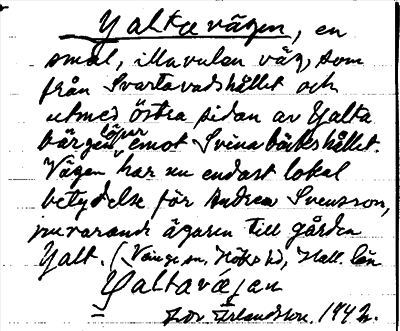 Yaltavägen, en
smal, illavulen väg, som
från Svartavadshållet och
utmed östra sidan av Yalta
bärgen löper emot Svinabäckshållet.
Vägen har nu endast lokal
betydelse för Andreas Svensson,
nuvarande ägaren till gården
Yalt. (Vänge sn, Höks hd, Hall. län
Yaltavägan
Erlandsson. 1942.